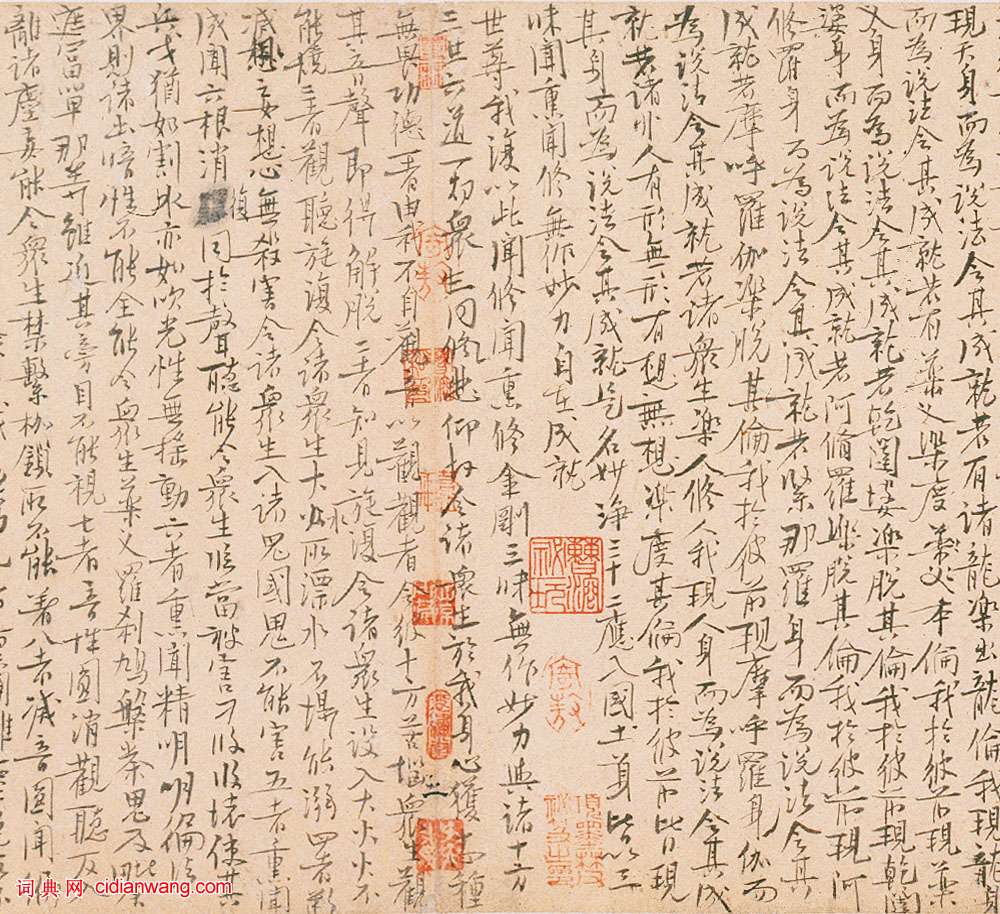 現天身而為說法令其成就若有諸龍樂出龍倫我現龍身
而為說法令其成就若有藥叉樂度藥叉本倫我於彼前現藥
叉身而為說法令其成就若乾闥婆樂脫其倫我於彼前現乾闥
婆身而為說法令其成就若阿脩羅樂脫其倫我於彼前現阿
脩羅身而為說法令其成就若緊那羅身而為說法令其
成就若摩呼羅伽樂脫其倫我於彼前現摩呼羅身伽而
為說法令其成就若諸眾生樂人修人我現人身而為說法令其成
就若諸非人有形無形有想無想樂度其倫我於彼前皆現
其身而為說法令其成就是名妙淨三十二應入國土身皆以三
昧聞熏聞修無作妙力自在成就
世尊我復以此聞修聞熏修金剛三昧無作妙力與諸十方
三世六道一切眾生同修悲仰故令諸眾生於我身心獲十四種
無畏功德一者由我不自觀音以觀觀者令彼十方苦惱眾生觀
其音聲即得解脫二者知見旋復令諸眾生設入大火火不
能燒三者觀聽旋復令諸眾生大水所漂水不能溺四者斷
滅妄想心無殺害令諸眾生入諸鬼國鬼不能害五者熏聞
成聞六根消復同於聲聽能令眾生臨當被害刀段段壞使其
兵戈猶如割水亦如吹光性無搖動六者熏聞精明明徧法
界則諸幽暗性不能全能令眾生藥叉羅剎鳩槃茶鬼及毗舍
遮富單那等雖近其旁目不能視七者音性圓消觀聽反入
離諸塵妄能令眾生禁繫枷鎖所不能著八者滅音圓聞
词典网 cidianwang.com